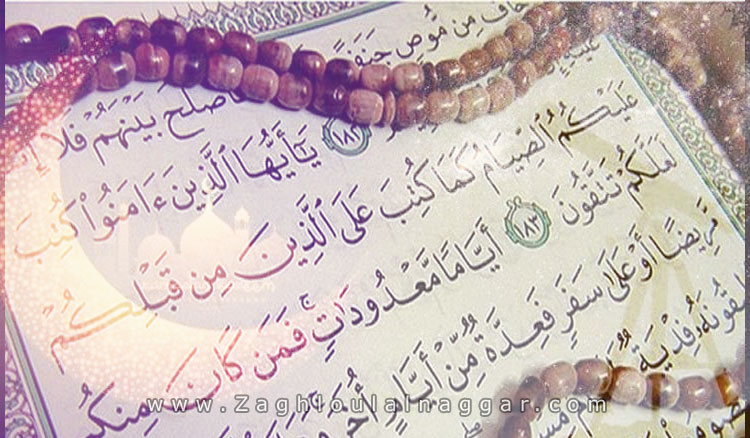 مِن مُّوصٍ
فَأَصْلَحَ بَيْنَهُمْ فَلَا
١٨٢ يَٰٓأَيُّهَا ٱلَّذِينَ ءَامَنُوا۟ كُتِبَ
عَلَيْكُمُ ٱلصِّيَامُ كَمَا كُتِبَ عَلَى ٱلَّذِينَ مِن قَبْلِكُمْ
لَعَلَّكُمْ تَتَّقُونَ ١٨٣ أَيَّامًا مَّعْدُودَٰتٍ ۚ فَمَن كَانَ مِنكُم
مَّرِيضًا أَوْ عَلَىٰ سَفَرٍ فَعِدَّةٌ مِّنْ أَيَّامٍ أُخَرَ
فِدْيَةٌ
www.Zaghloulalnaggar.com